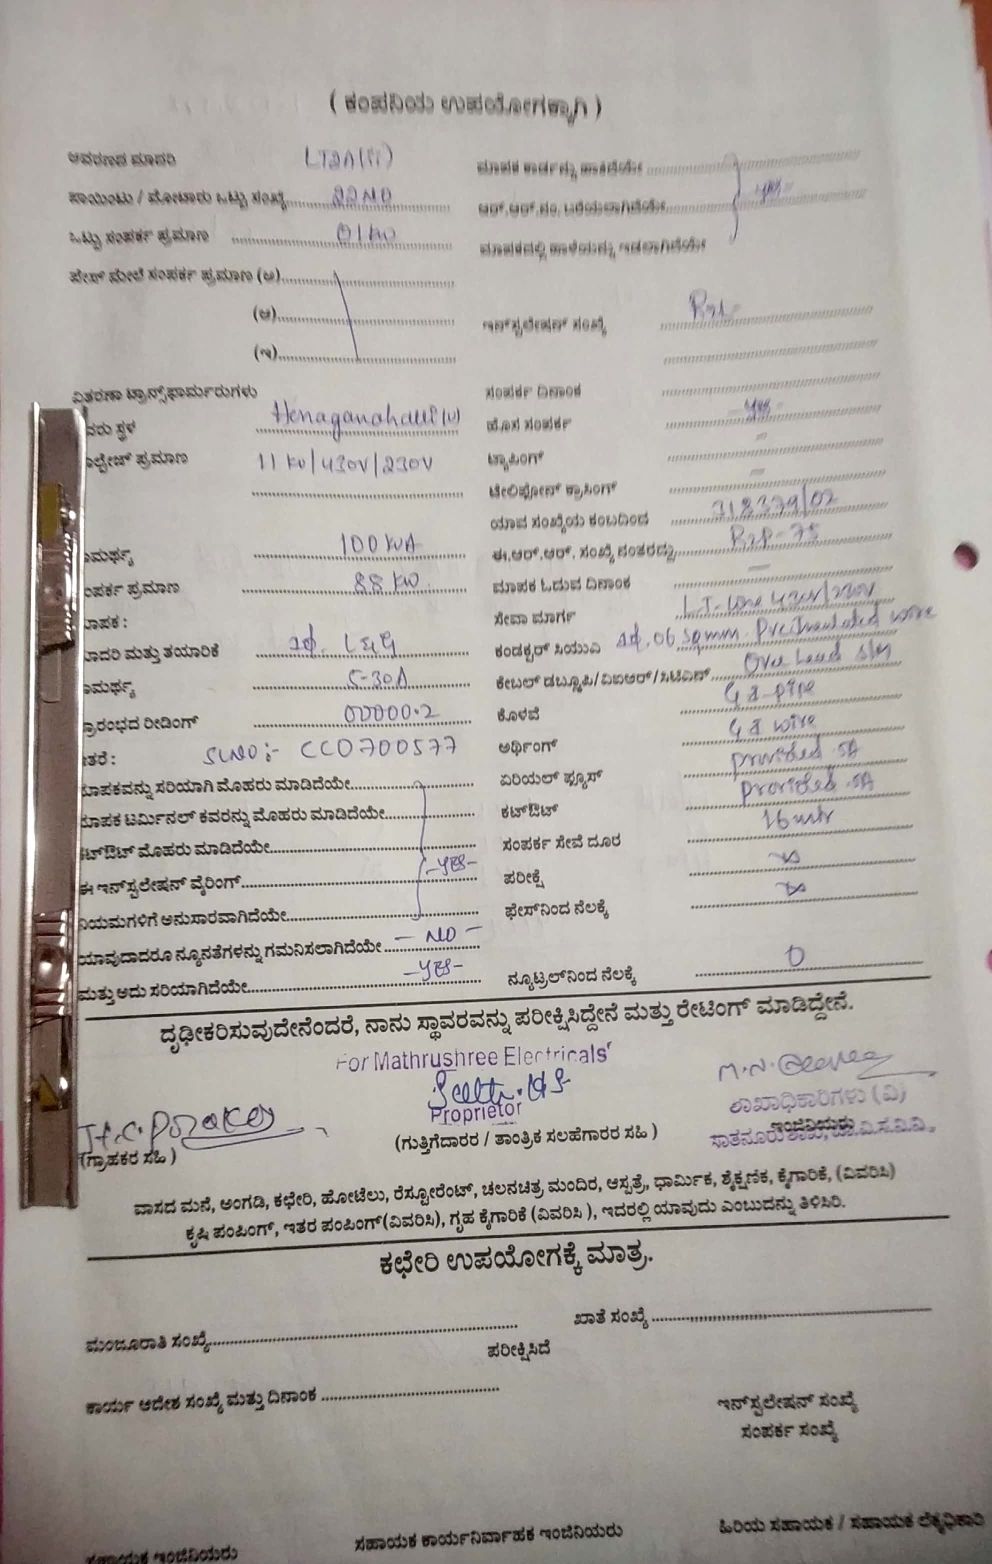 ( ಕಂಪನಿಯ ಉಪಯೋಗಕ್ಕಾಗಿ )
ಆವರಣದ ಮಾದರಿ LT2A(ii) ಮಾಪಕ ಕಾರ್ಡನ್ನು ಹಾಕಿದೆಯೇ
ಪಾಯಿಂಟು / ಮೋಟಾರು ಒಟ್ಟು ಸಂಖ್ಯೆ 22NO ಆರ್.ಆರ್.ನಂ. ಬರೆಯಲಾಗಿದೆಯೇ yes
ಒಟ್ಟು ಸಂಪರ್ಕ ಪ್ರಮಾಣ 01KW ಮಾಪಕದಲ್ಲಿ ಹಾಳೆಯನ್ನು ಇಡಲಾಗಿದೆಯೇ
ಫೇಸ್ ಮೇಲೆ ಸಂಪರ್ಕ ಪ್ರಮಾಣ (ಅ)
(ಆ) ಇನ್‌ಸ್ಟಲೇಷನ್ ಸಂಖ್ಯೆ
(ಇ)
ವಿತರಣಾ ಟ್ರಾನ್ಸ್‌ಫಾರ್ಮರುಗಳು ಸಂಪರ್ಕ ದಿನಾಂಕ
ವರು ಸ್ಥಳ Henaganahalli (v) ಹೊಸ ಸಂಪರ್ಕ yes
ಲ್ಟೇಜ್ ಪ್ರಮಾಣ 11 KV/430V/230V ಟ್ಯಾಪಿಂಗ್ =
ಟೆಲಿಫೋನ್ ಕ್ರಾಸಿಂಗ್ =
ಯಾವ ಸಂಖ್ಯೆಯ ಕಂಬದಿಂದ 318379/02
ಾಮರ್ಥ್ಯ 100 KVA ಈ.ಆರ್.ಆರ್. ಸಂಖ್ಯೆ ನಂತರದ್ದು
ಂಪರ್ಕ ಪ್ರಮಾಣ 88 KW ಮಾಪಕ ಓದುವ ದಿನಾಂಕ
ಾಪಕ : ಸೇವಾ ಮಾರ್ಗ L.T-Line 430V/230V
ಾದರಿ ಮತ್ತು ತಯಾರಿಕೆ 1ф. L&G ಕಂಡಕ್ಟರ್ ಸಿಯುವಿ 1ф, 06 sqmm. PVC Insulated wire
ಾಮರ್ಥ್ಯ 5-30A ಕೇಬಲ್ ಡಬ್ಲ್ಯೂಪಿ/ವಿಐಆರ್/ಸಿಟಿಎಸ್ Over head
ಪ್ರಾರಂಭದ ರೀಡಿಂಗ್ 00000.2 ಕೊಳವೆ G I-pipe
ತರೆ : SLNO :- CC0700577 ಅರ್ಥಿಂಗ್ G I wire
ಮಾಪಕವನ್ನು ಸರಿಯಾಗಿ ಮೊಹರು ಮಾಡಿದೆಯೇ ಏರಿಯಲ್ ಫ್ಯೂಸ್ provided 5A
ಮಾಪಕ ಟರ್ಮಿನಲ್ ಕವರನ್ನು ಮೊಹರು ಮಾಡಿದೆಯೇ ಕಟ್‌ಔಟ್ provided 5A
ಕಟ್‌ಔಟ್ ಮೊಹರು ಮಾಡಿದೆಯೇ ಸಂಪರ್ಕ ಸೇವೆ ದೂರ 16 mtr
ಈ ಇನ್‌ಸ್ಟಲೇಷನ್ ವೈರಿಂಗ್ -YES- ಪರೀಕ್ಷೆ ∞
ನಿಯಮಗಳಿಗೆ ಅನುಸಾರವಾಗಿದೆಯೇ ಫೇಸ್‌ನಿಂದ ನೆಲಕ್ಕೆ ∞
ಯಾವುದಾದರೂ ನ್ಯೂನತೆಗಳನ್ನು ಗಮನಿಸಲಾಗಿದೆಯೇ - NO -
ಮತ್ತು ಅದು ಸರಿಯಾಗಿದೆಯೇ -YES- ನ್ಯೂಟ್ರಲ್‌ನಿಂದ ನೆಲಕ್ಕೆ 0
ದೃಢೀಕರಿಸುವುದೇನೆಂದರೆ, ನಾನು ಸ್ಥಾವರವನ್ನು ಪರೀಕ್ಷಿಸಿದ್ದೇನೆ ಮತ್ತು ರೇಟಿಂಗ್ ಮಾಡಿದ್ದೇನೆ.
For Mathrushree Electricals
Proprietor ಶಾಖಾಧಿಕಾರಿಗಳು (ವಿ)
(ಗ್ರಾಹಕರ ಸಹಿ ) (ಗುತ್ತಿಗೆದಾರರ / ತಾಂತ್ರಿಕ ಸಲಹೆಗಾರರ ಸಹಿ ) ಇಂಜಿನಿಯರು
ವಾಸದ ಮನೆ, ಅಂಗಡಿ, ಕಛೇರಿ, ಹೋಟೆಲು, ರೆಸ್ಟೋರೆಂಟ್, ಚಲನಚಿತ್ರ ಮಂದಿರ, ಆಸ್ಪತ್ರೆ, ಧಾರ್ಮಿಕ, ಶೈಕ್ಷಣಿಕ, ಕೈಗಾರಿಕೆ, (ವಿವರಿಸಿ)
ಕೃಷಿ ಪಂಪಿಂಗ್, ಇತರ ಪಂಪಿಂಗ್(ವಿವರಿಸಿ), ಗೃಹ ಕೈಗಾರಿಕೆ (ವಿವರಿಸಿ ), ಇದರಲ್ಲಿ ಯಾವುದು ಎಂಬುದನ್ನು ತಿಳಿಸಿರಿ.
ಕಛೇರಿ ಉಪಯೋಗಕ್ಕೆ ಮಾತ್ರ.
ಮಂಜೂರಾತಿ ಸಂಖ್ಯೆ ಖಾತೆ ಸಂಖ್ಯೆ
ಪರೀಕ್ಷಿಸಿದೆ
ಕಾರ್ಯ ಆದೇಶ ಸಂಖ್ಯೆ ಮತ್ತು ದಿನಾಂಕ ಇನ್‌ಸ್ಟಲೇಷನ್ ಸಂಖ್ಯೆ
ಸಂಪರ್ಕ ಸಂಖ್ಯೆ
ಸಹಾಯಕ ಇಂಜಿನಿಯರು ಸಹಾಯಕ ಕಾರ್ಯನಿರ್ವಾಹಕ ಇಂಜಿನಿಯರು ಹಿರಿಯ ಸಹಾಯಕ / ಸಹಾಯಕ ಲೆಕ್ಕಾಧಿಕಾರಿ